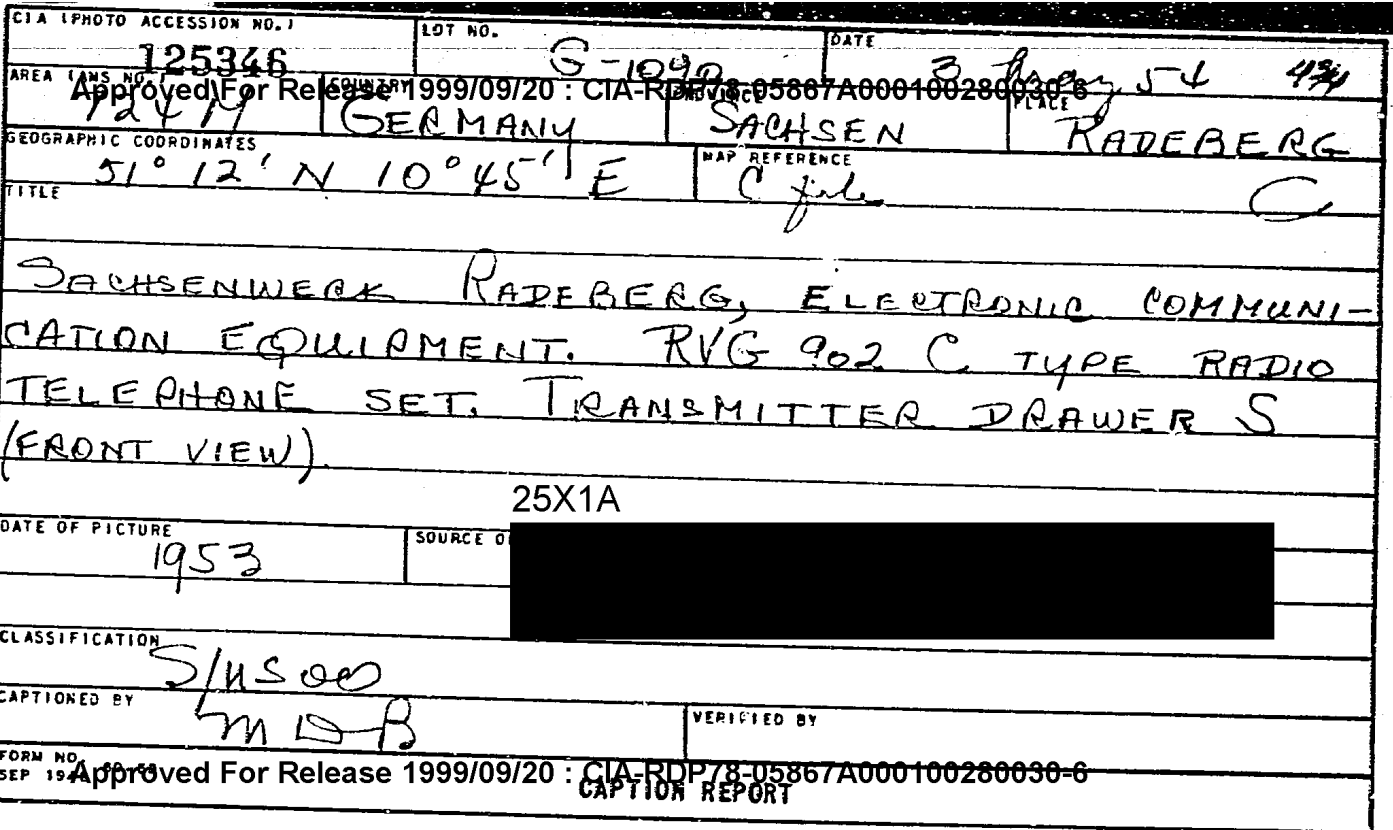 CIA (PHOTO ACCESSION NO.) LOT NO. DATE
125346 G-1090 3 54
Approved For Release 1999/09/20 : CIA-RDP78-05867A000100280030-6
AREA (AMS NO.) COUNTRY PROVINCE PLACE
GERMANY SACHSEN RADEBERG
GEOGRAPHIC COORDINATES MAP REFERENCE
51° 12' N 10° 45' E C file C
TITLE
SACHSENWERK RADEBERG, ELECTRONIC COMMUNI-
CATION EQUIPMENT. RVG 902 C TYPE RADIO
TELEPHONE SET. TRANSMITTER DRAWER S
(FRONT VIEW).
25X1A
DATE OF PICTURE SOURCE
1953
CLASSIFICATION
CAPTIONED BY VERIFIED BY
MDB
FORM NO.
SEP
Approved For Release 1999/09/20 : CIA-RDP78-05867A000100280030-6
CAPTION REPORT